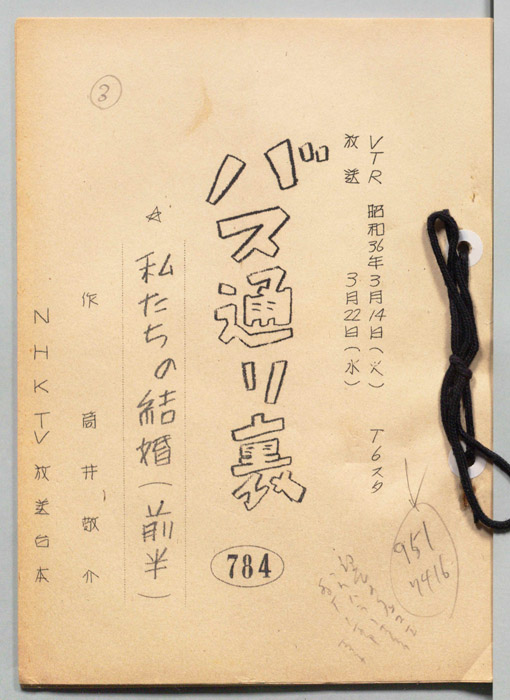 VTR 昭和36年3月14日(火) T6スタ
放送 3月22日(水)
バス通り裏
784
☆ 私たちの結婚(前半)
作 筒井敬介
NHKTV放送台本
3
951
7416